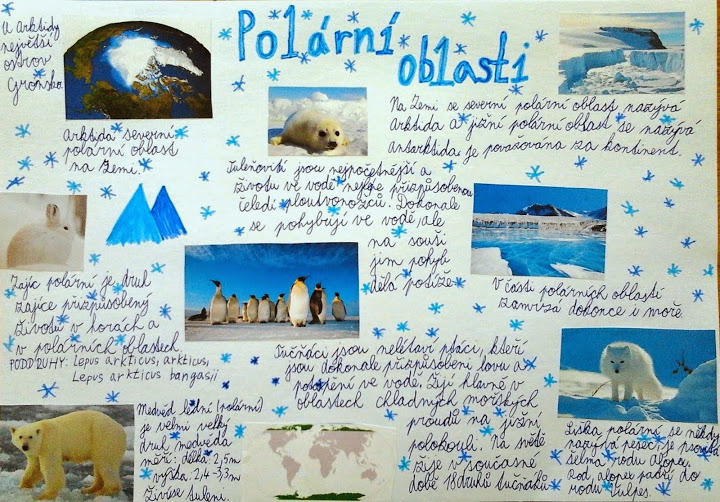 Polární
oblasti
U Arktidy
největší
ostrov
Gronsko
Arktida severní
polární oblast
na Zemi.
Na Zemi se severní polární oblast nazývá
Arktida a jižní polární oblast se nazývá
antarktida je považována za kontinent.
Tuleňovití jsou nejpočetnější a
životu ve vodě nejlépe přizpůsobenou
čeledí ploutvonožců. Dokonale
se pohybují ve vodě, ale
na souši
jim pohyb
dělá potíže.
V části polárních oblastí
zamrzá dokonce i moře.
Zajíc polární je druh
zajíce přizpůsobený
životu v horách a
v polárních oblastech
PODDRUHY: Lepus arkticus, arkticus,
Lepus arkticus bangasii
Tučňáci jsou nelétaví ptáci, kteří
jsou dokonale přizpůsobeni lovu a
potápění ve vodě. Žijí hlavně v
oblastech chladných mořských
proudů na jižní
polokouli. Na světě
žije v současné
době 18 druhů tučňáků
Medvěd lední (polární)
je velmi velký
druh medvěda
měří: délka: 2,5m
výška: 2,4-3,3m
živí se tuleni.
Liška polární se někdy
nazývá pesec je psovitá
šelma rodu Alopex.
Rod alopex patří do
rodu Vulpes